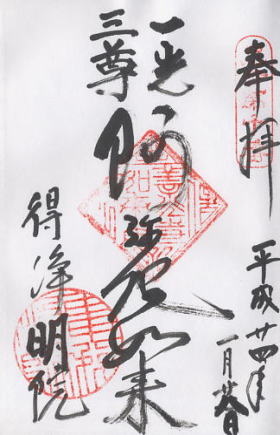 奉拝
平成廿四年
一月廿八日
一光
三尊
阿弥陀如来
得浄明院